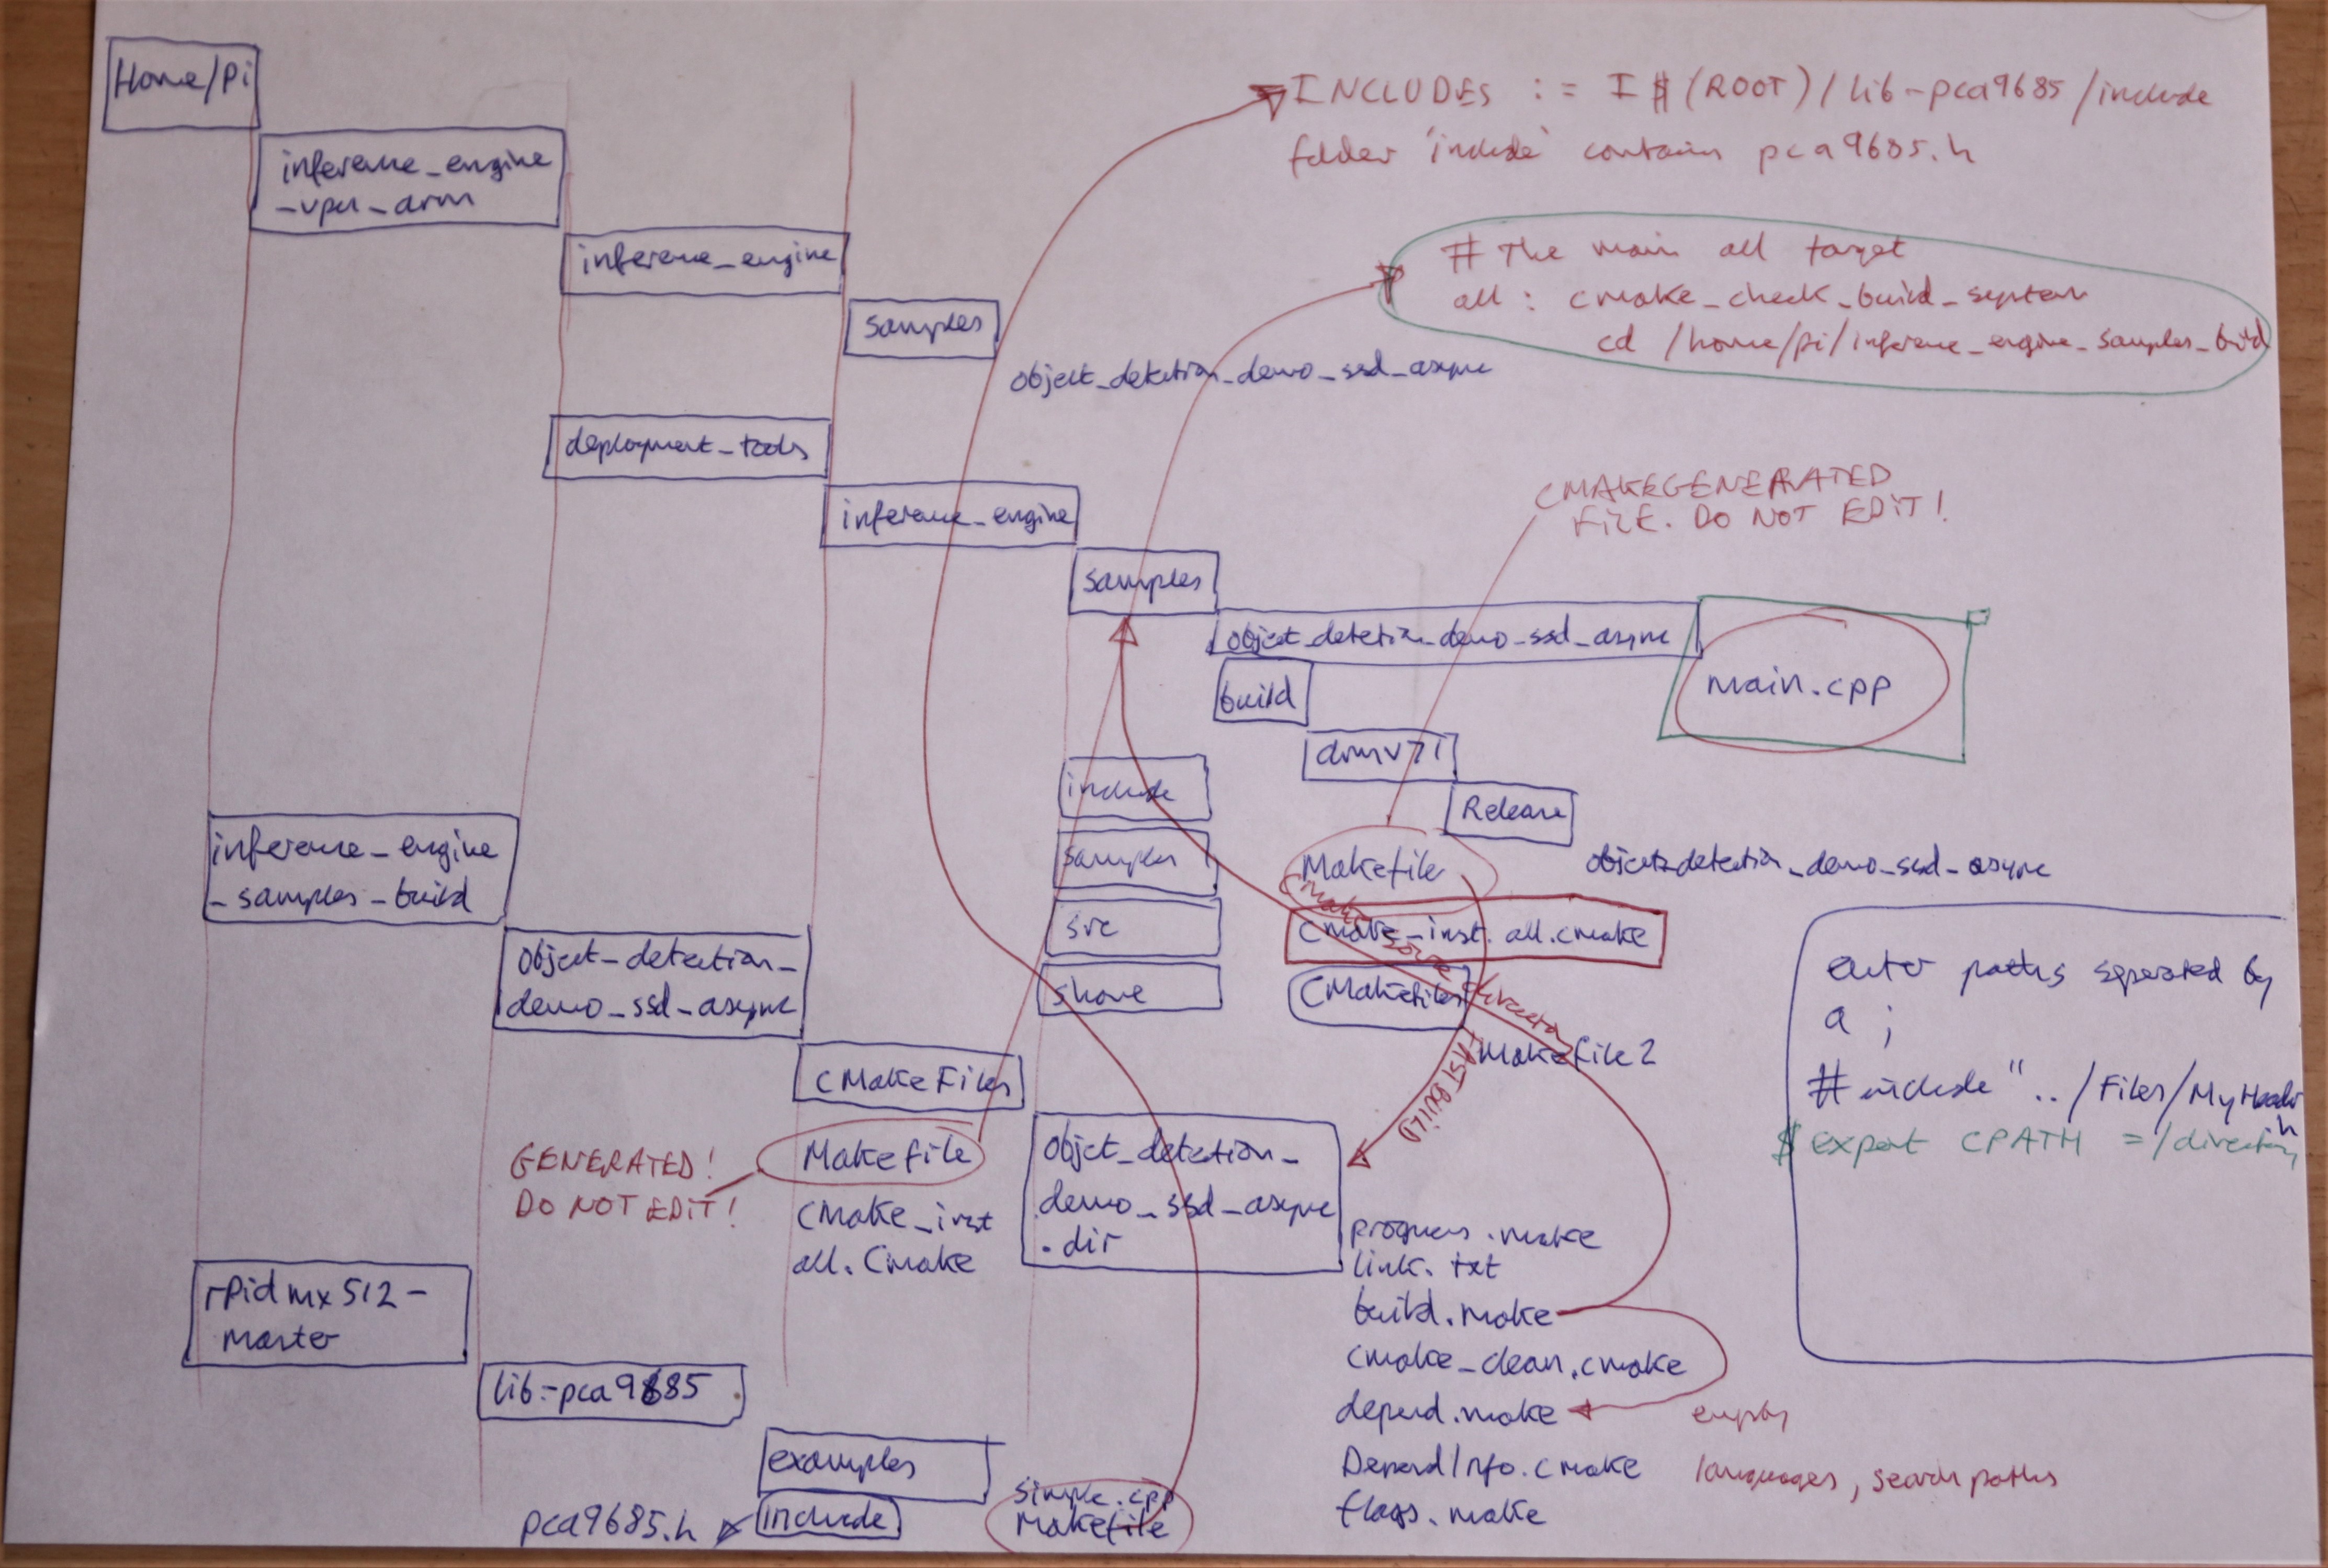 Home/Pi
INCLUDES := I $(ROOT)/lib-pca9685/include
folder 'include' contains pca9685.h
inference_engine
_vpu_arm
inference_engine
samples
object_detection_demo_ssd_async
# The main all target
all : cmake_check_build_system
cd /home/pi/inference_engine_samples_build
deployment_tools
inference_engine
samples
CMAKEGENERATED
FILE. DO NOT EDIT!
object_detection_demo_ssd_async
main.cpp
build
armv7l
Release
object_detection_demo_ssd_async
include
samples
src
share
Makefile
cmake source directory
cmake_inst.all.cmake
CMakefiles
Makefile2
FAST BUILD
inference_engine
_samples_build
object_detection_
demo_ssd_async
CMakeFiles
GENERATED!
DO NOT EDIT!
Makefile
CMake_inst
all.Cmake
object_detection_
demo_ssd_async
.dir
progress.make
link.txt
build.make
cmake_clean.cmake
depend.make
empty
DependInfo.cmake
languages, search paths
flags.make
enter paths seperated by
a ;
# include "../Files/MyHeader
h
$ export CPATH =/directory
rpidmx512-
master
lib-pca9685
examples
include
pca9685.h
simple.cpp
Makefile